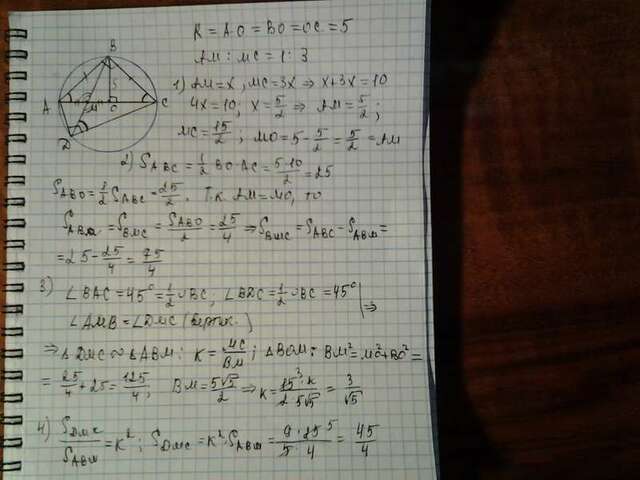 R = AO = BO = OC = 5
AM : MC = 1 : 3
B
A
M
O
C
D
5
1) AM = x, MC = 3x ⇒ x + 3x = 10
4x = 10; x = 5/2 ⇒ AM = 5/2;
MC = 15/2; MO = 5 - 5/2 = 5/2 = AM
2) S_ABC = 1/2 BO · AC = 5·10/2 = 25
S_ABO = 1/2 S_ABC = 25/2. Т.к. AM = MO, то
S_ABM = S_BMC = S_ABO/2 = 25/4 ⇒ S_BMC = S_ABC - S_ABM =
= 25 - 25/4 = 75/4
3) ∠BAC = 45° = 1/2 ∪BC; ∠BDC = 1/2 ∪BC = 45° | ⇒
∠AMB = ∠DMC (вертик.)
⇒ △DMC ∾ △ABM: K = MC/BM; △BOM: BM² = MO² + BO² =
= 25/4 + 25 = 125/4; BM = 5√5/2 ⇒ K = 15·2/2·5√5 = 3/√5
4) S_DMC/S_ABM = K²; S_DMC = K²·S_ABM = 9·25/5·4 = 45/4